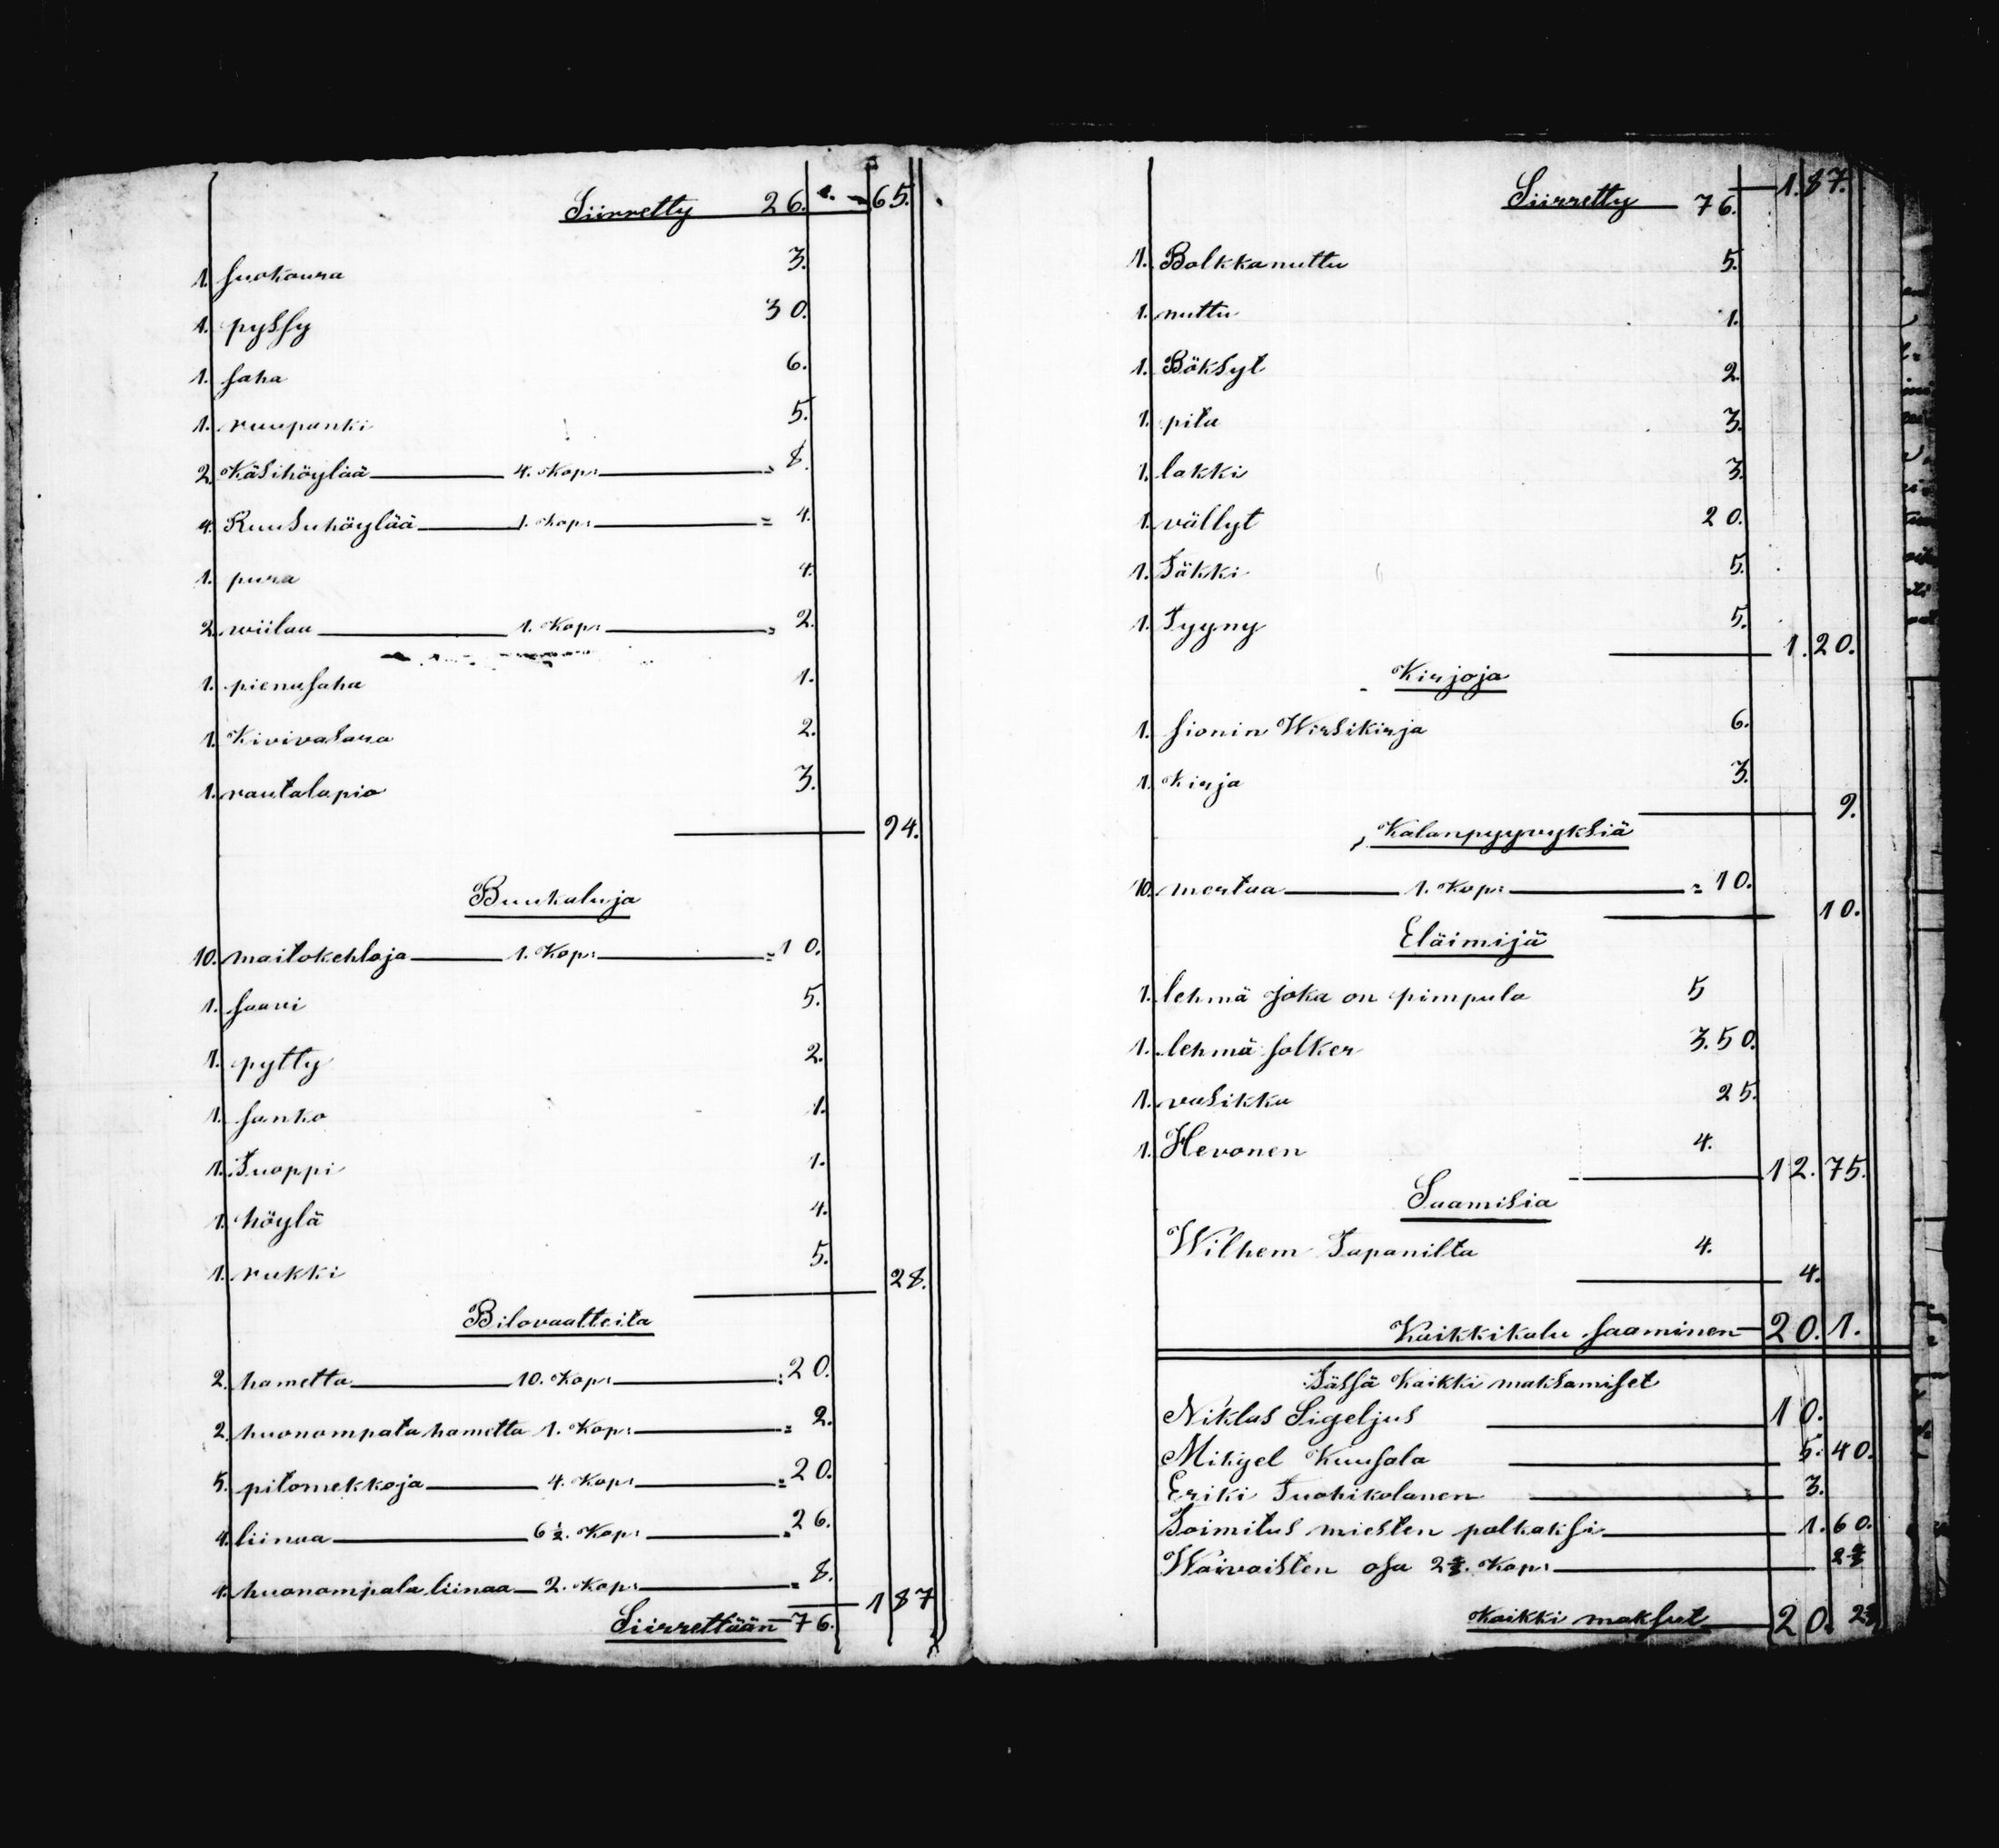 Siirretty 26. 65.
1. suokoura 3.
1. pyssy 30.
1. saha 6.
1. ruupanki 5.
2. Käsihöylää 4. Kop: = 8.
4. Ruusuhöylää 1. Kop: = 4.
1. pura 4.
2. wiilaa 1. Kop: = 2.
1. pienasaha 1.
1. Kivivasara 2.
1. rautalapio 3.
94.
Buukaluja
10. maitokehloja 1. Kop: = 10.
1. saavi 5.
1. pytty 2.
1. sanko 1.
1. Tuoppi 1.
1. höylä 4.
1. rukki 5.
28.
Bitovaatteita
2. hametta 10. Kop: = 20.
2. huonompata hametta 1. Kop: = 2.
5. pitomekkoja 4. Kop: = 20.
4. liinaa 6 1/2. Kop: = 26.
4. huonompata liinaa 2. Kop: = 8.
187
Siirrettään 76.
Siirretty 76. 1.87.
1. Bolkkanuttu 5.
1. nuttu 1.
1. Böksyt 2.
1. pita 3.
1. lakki 3.
1. vällyt 20.
1. Säkki 5.
1. Tyyny 5.
1.20.
Kirjoja
1. sionin Wirsikirja 6.
1. Kirja 3.
9.
Kalanpyyvyksiä
10. mertaa 1. Kop: = 10.
10.
Eläimijä
1. lehmä joka on pimpula 5
1. lehmä solker 3.50.
1. vasikka 25.
1. Hevonen 4.
12.75.
Saamisia
Wilhem Tapanilta 4.
4.
Kaikkikalu saaminen 20.1.
Tässä Kaikki maksamiset
Niklas Sigeljus 10.
Mikjel Kuusala 5.40.
Eriki Tuohikolanen 3.
Toimitus miesten palkaksi 1.60.
Waivaisten osa 2 2/3. Kop: 2 2/3
Kaikki maksut 20. 2 2/3